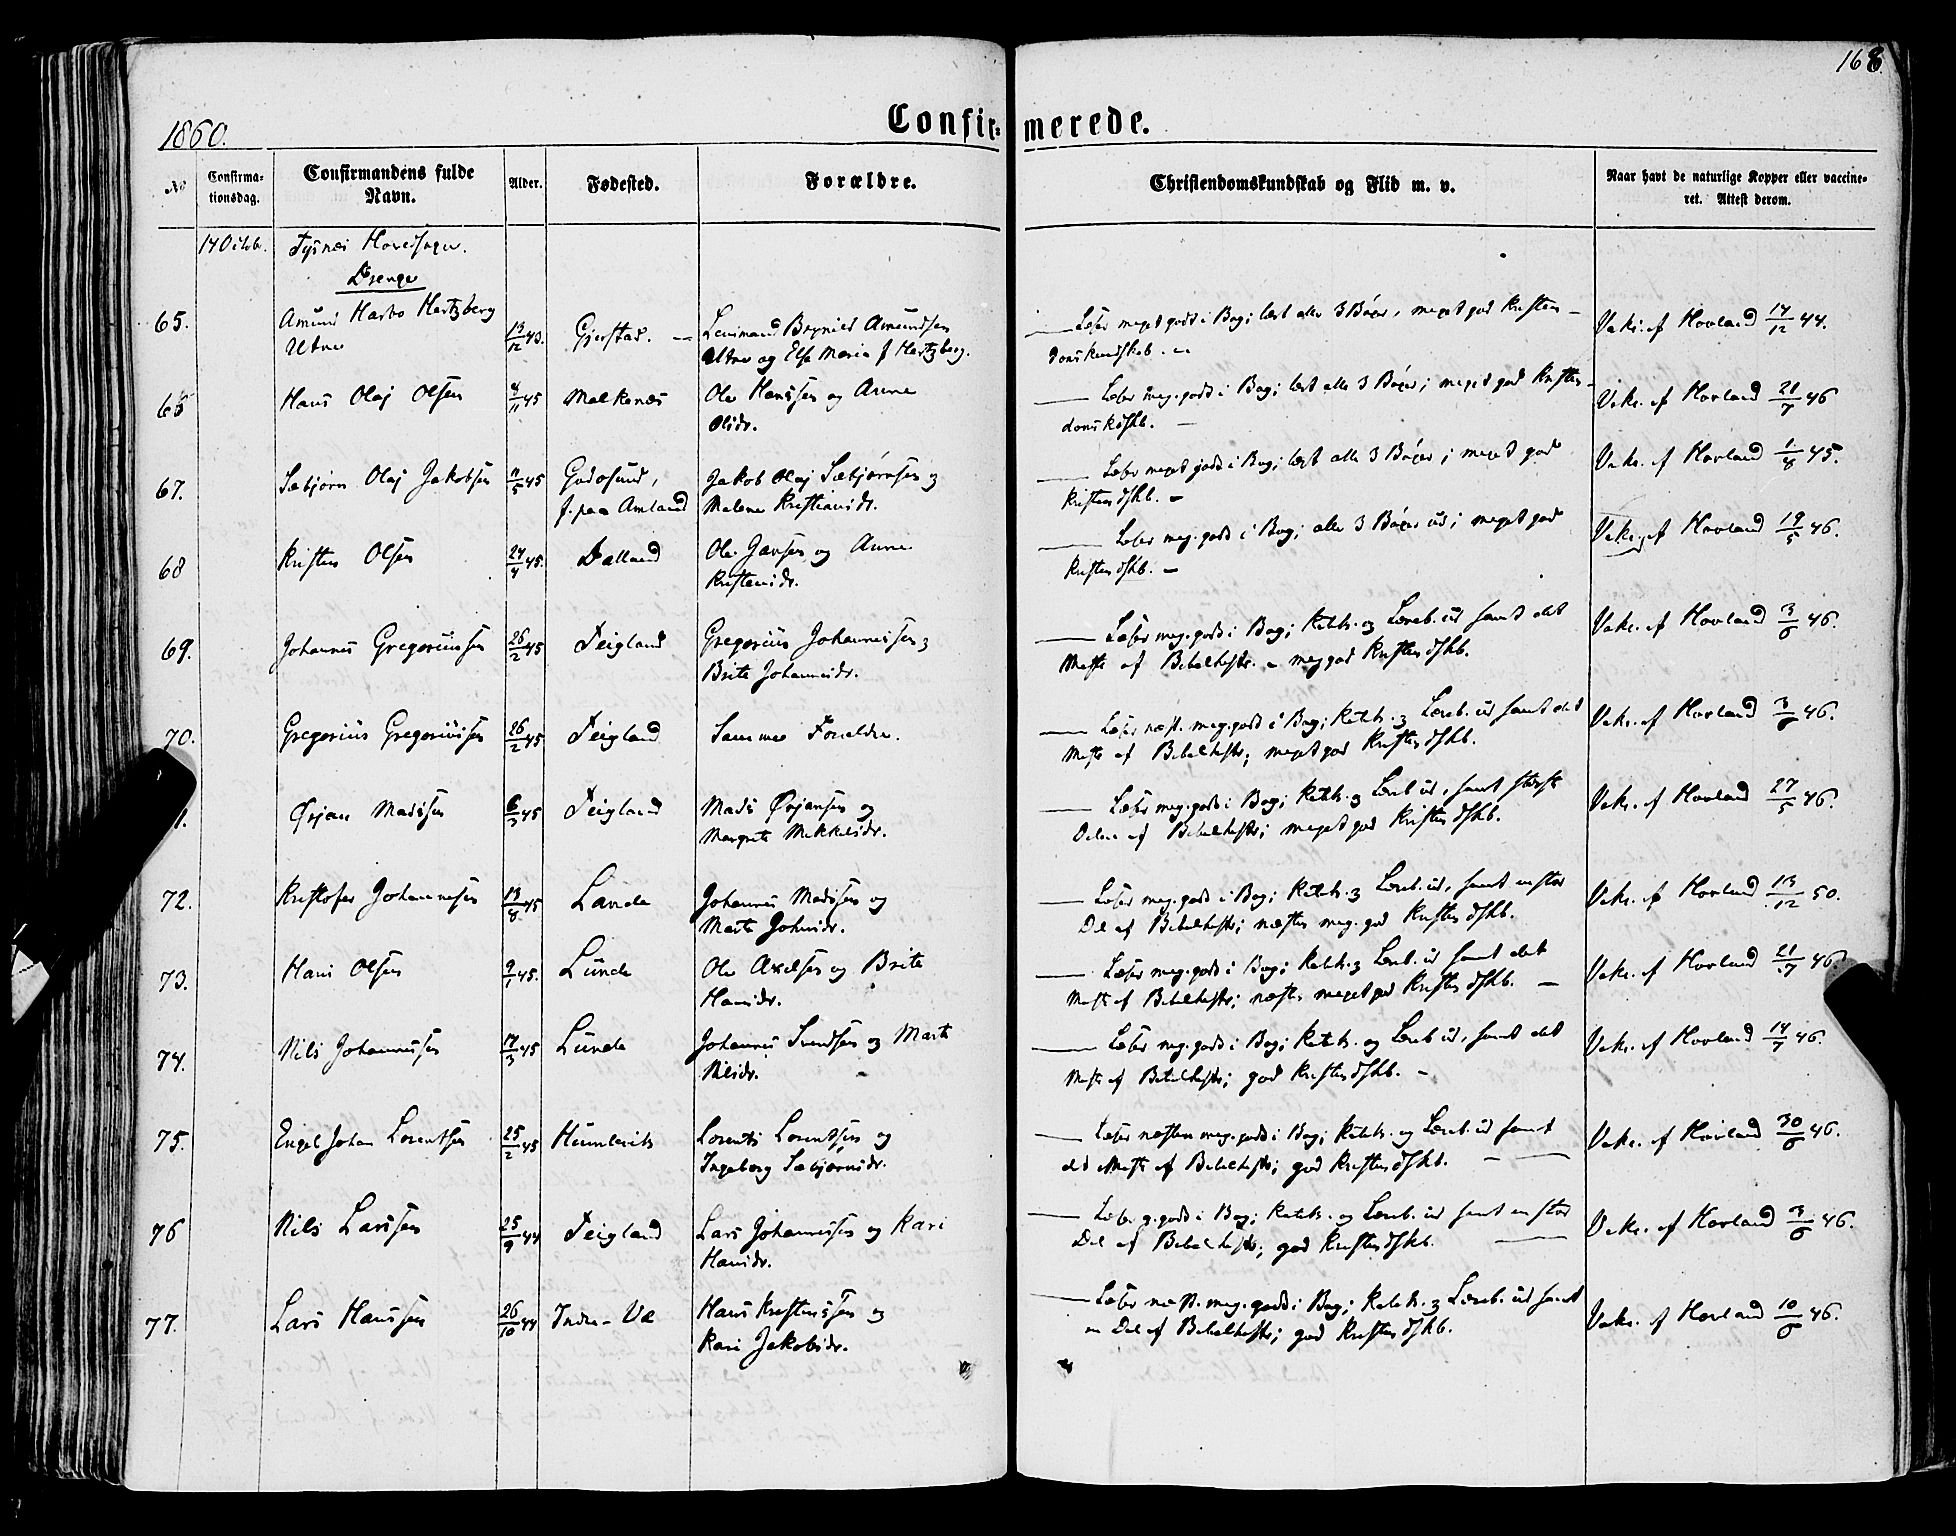 168.
1860.
Confir= merede.
No
Confirma-
tionsdag.
Confirmandens fulde
Navn.
Alder.
Fødested.
Forældre.
Christendomskundskab og Flid m. v.
Naar havt de naturlige Kopper eller vaccine-
ret. Attest derom.
14 Octbr.
Tysnæs Hovedsogn.
Drenge
65.
Amund Harbo Hertzberg
Utne
13/12 43.
Gjerstad. —
Lensmand Brynild Amundsen
Utne og Else Maria f Hertzberg.
— Læser meget godt i Bog; læst alle 3 Bøger, meget god Kristen-
domskundskab. —
Vaks. af Hovland 14/12 44.
66
Hans Olaj Olsen
4/11 45
Malkenæs
Ole Hanssen og Anne
Olsdr.
— Læser meg. godt i Bog; læst alle 3 Bøger; meget god Kristen-
domskdskb. —
Vaks. af Hovland 21/7 46
67.
Sæbjørn Olaj Jakobsen
11/5 45
Godøsund,
f. paa Amland
Jakob Olaj Sæbjørnsen og
Malene Kristiansdr.
— Læser meget godt i Bog; læst alle 3 Bøger; meget god
Kristendskb. —
Vaks. af Hovland 1/8 45.
68
Kristen Olsen
24/4 45.
Dalland
Ole Jansen og Anne
Kristensdr.
— Læser meg. godt i Bog; alle 3 Bøger ud; meget god
Kristendskb. —
Vaks. af Hovland 19/5 46.
69.
Johannes Gregoriussen
26/2 45
Teigland
Gregorius Johannessen og
Brite Johannesdr.
— Læser meg. godt i Bog; Katek. og Læreb. ud samt det
Meste af Bibelhistr. — meg god Kristendskb.
Vaks. af Hovland 3/6 46.
70.
Gregorius Gregoriussen
26/2 45
Teigland
Samme Forældre.
— Læser næst. meg. godt i Bog; Katek. og Læreb. ud samt det
Meste af Bibelhistr; meget god Kristendskb.
Vaks. af Hovland 3/6 46.
1.
Ørjan Madssen
6/3 45
Teigland
Mads Ørjansen og
Margrete Mikkelsdr.
— Læser meg. godt i Bog; Katek. og Læreb. ud, samt største
Delen af Bibelhistr; meget god Kristendskb.
Vaks. af Hovland 27/5 46.
72.
Kristofer Johannessen
13/8 45
Lande
Johannes Madssen og
Marte Johnsdr.
— Læser meg. godt i Bog; Katek. og Læreb. ud, samt en stor
Del af Bibelhistr; næsten meg. god Kristendskb.
Vaks. af Hovland 13/12 50.
73.
Hans Olsen
9/1 45.
Lunde
Ole Axelsen og Brite
Hansdr.
— Læser meg. godt i Bog; Katek. og Læreb. ud samt det
Meste af Bibelhistr; næsten meget god Kristendskb. —
Vaks. af Hovland 21/7 46.
74.
Nils Johannessen
14/3 45
Lunde
Johannes Svendsen og Marte
Nilsdr.
— Læser meg. godt i Bog; Katek. og Læreb. ud, samt det
Meste af Bibelhistr; god Kristendskb. —
Vaks. af Hovland 14/7 46.
75.
Engel Johan Lorentsen
25/2 45
Humlevik
Lorents Lorentsen og
Ingeborg Sæbjørnsdr.
— Læser næsten meg. godt i Bog; Katek. og Læreb. ud samt
det Meste af Bibelhistr; god Kristendskb. —
Vaks. af Hovland 30/6 46.
76
Nils Larssen
25/9 44
Teigland
Lars Johannessen og Kari
Hansdr.
— Læser g. godt i Bog; Katek. og Læreb. ud samt en stor
Del af Bibelhistr; god Kristendskb. —
Vaks. af Hovland 3/6 46.
77.
Lars Hanssen
26/10 44
Indre-Væ
Hans Kristenssen og
Kari Jakobsdr.
— Læser næst. meg. godt i Bog; Katek. og Læreb. ud samt
en Del af Bibelhistr; god Kristendskb.
Vaks. af Hovland 10/6 46.